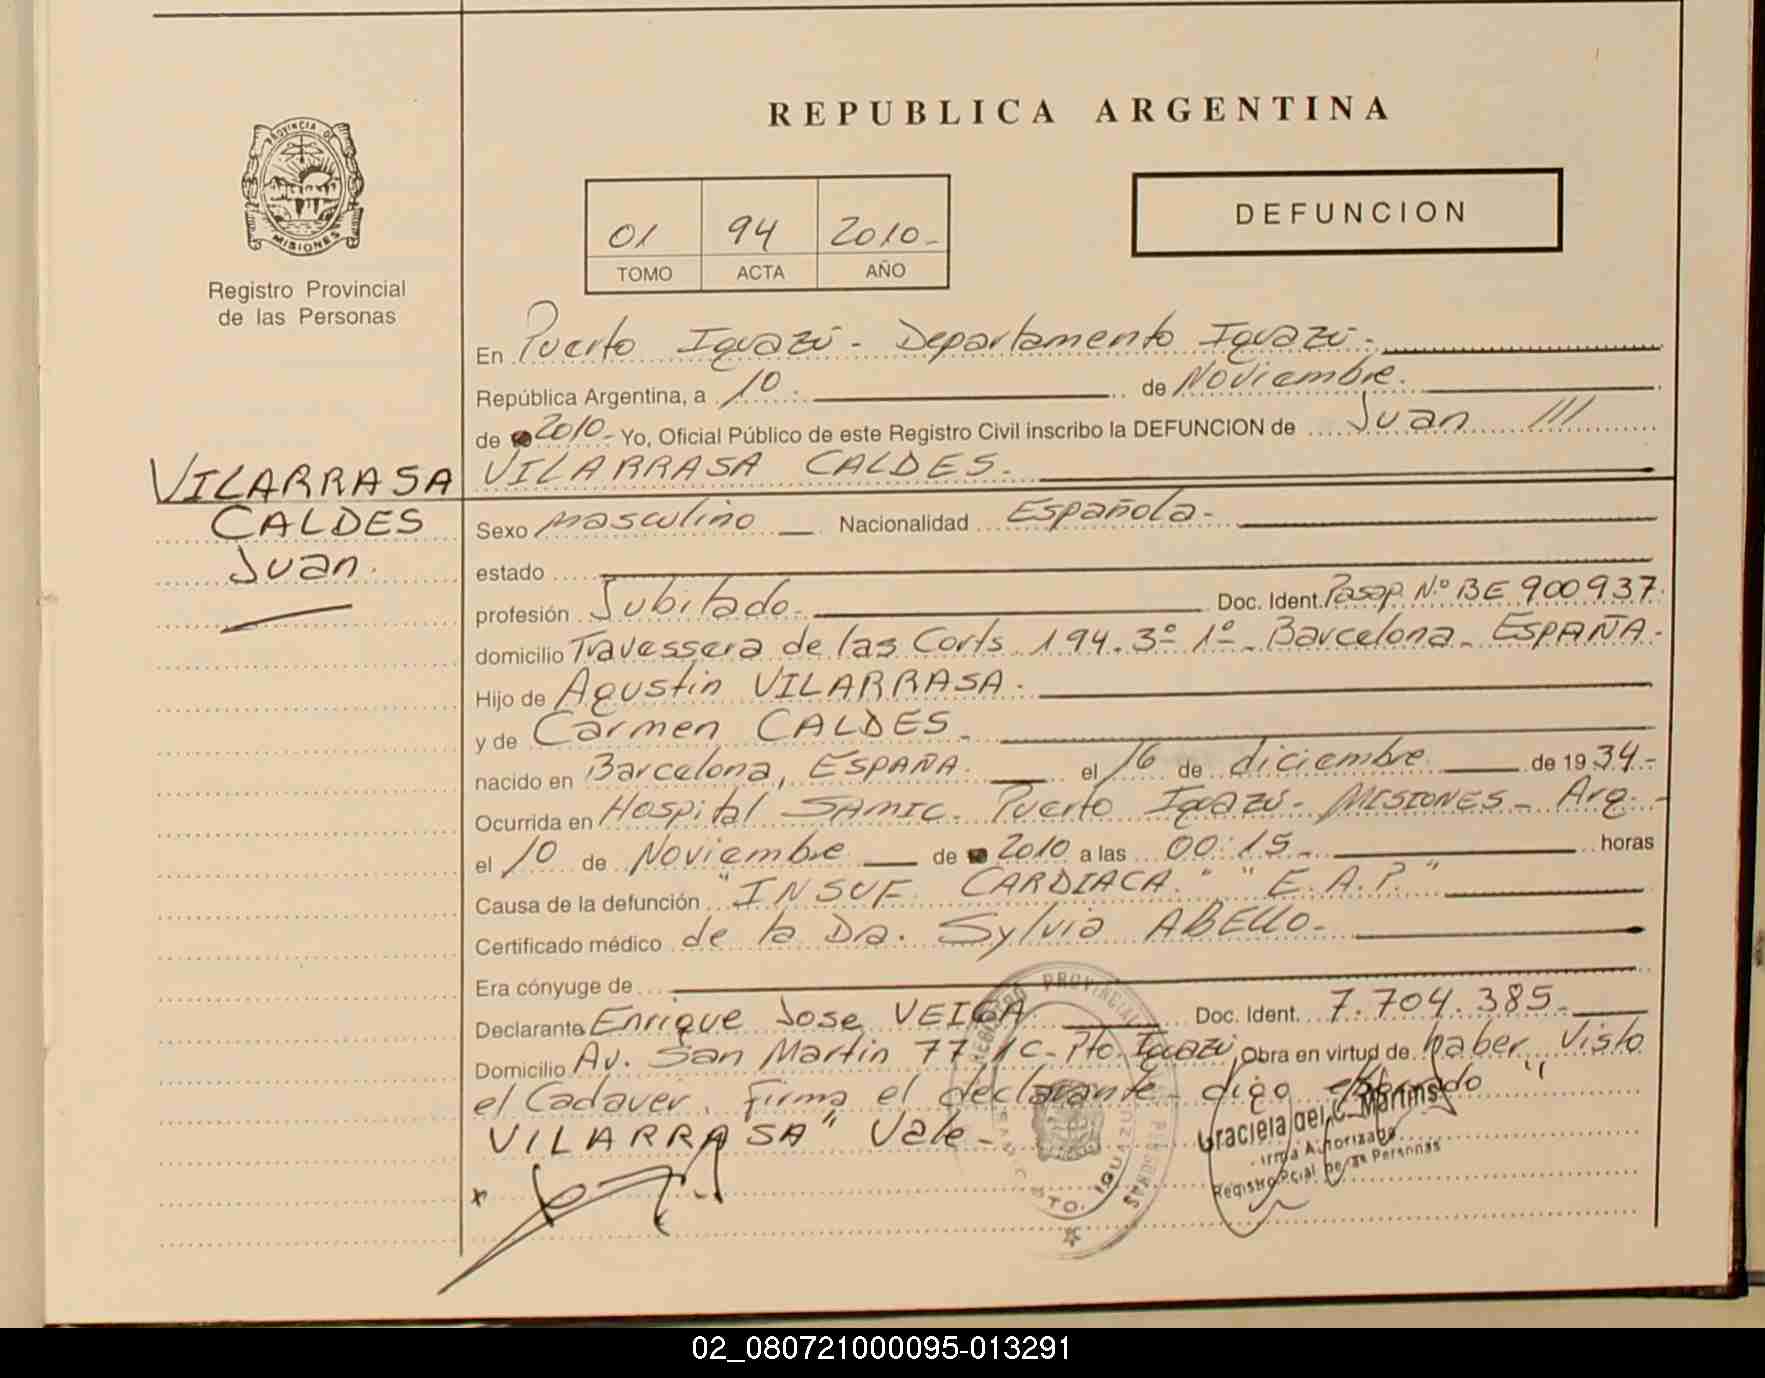 REPUBLICA ARGENTINA
PROVINCIA DE
MISIONES
Registro Provincial
de las Personas
DEFUNCION
01 94 2010-
TOMO ACTA AÑO
En Puerto Iguazú - Departamento Iguazú -
República Argentina, a 10 de Noviembre.
de 2010- Yo, Oficial Público de este Registro Civil inscribo la DEFUNCION de Juan ///
VILARRASA CALDES.
VILARRASA
CALDES
Juan.
Sexo masculino Nacionalidad Española -
estado
profesión Jubilado. Doc. Ident. Pasap. Nº BE 900937.
domicilio Travessera de las Corts 194. 3º 1º - Barcelona - ESPAÑA -
Hijo de Agustin VILARRASA -
y de Carmen CALDES -
nacido en Barcelona, ESPAÑA. el 16 de diciembre de 1934.-
Ocurrida en Hospital SAMIC - Puerto Iguazú - MISIONES - Arg. -
el 10 de Noviembre de 2010 a las 00:15 - horas
Causa de la defunción "INSUF. CARDIACA." "E.A.P."
Certificado médico de la Dra. Sylvia ABELLO -
Era cónyuge de
Declarante Enrique Jose VEIGA Doc. Ident. 7.704.385-
Domicilio Av. San Martin 77 1C - Pto. Iguazú, Obra en virtud de haber visto
el Cadaver. Firma el declarante - digo "
VILARRASA" Vale -
REGISTRO PROVINCIAL PERSONAS
PTO. IGUAZU
Graciela del C. Martins
Firma Autorizada
Registro Pcial. de las Personas
x
02_080721000095-013291